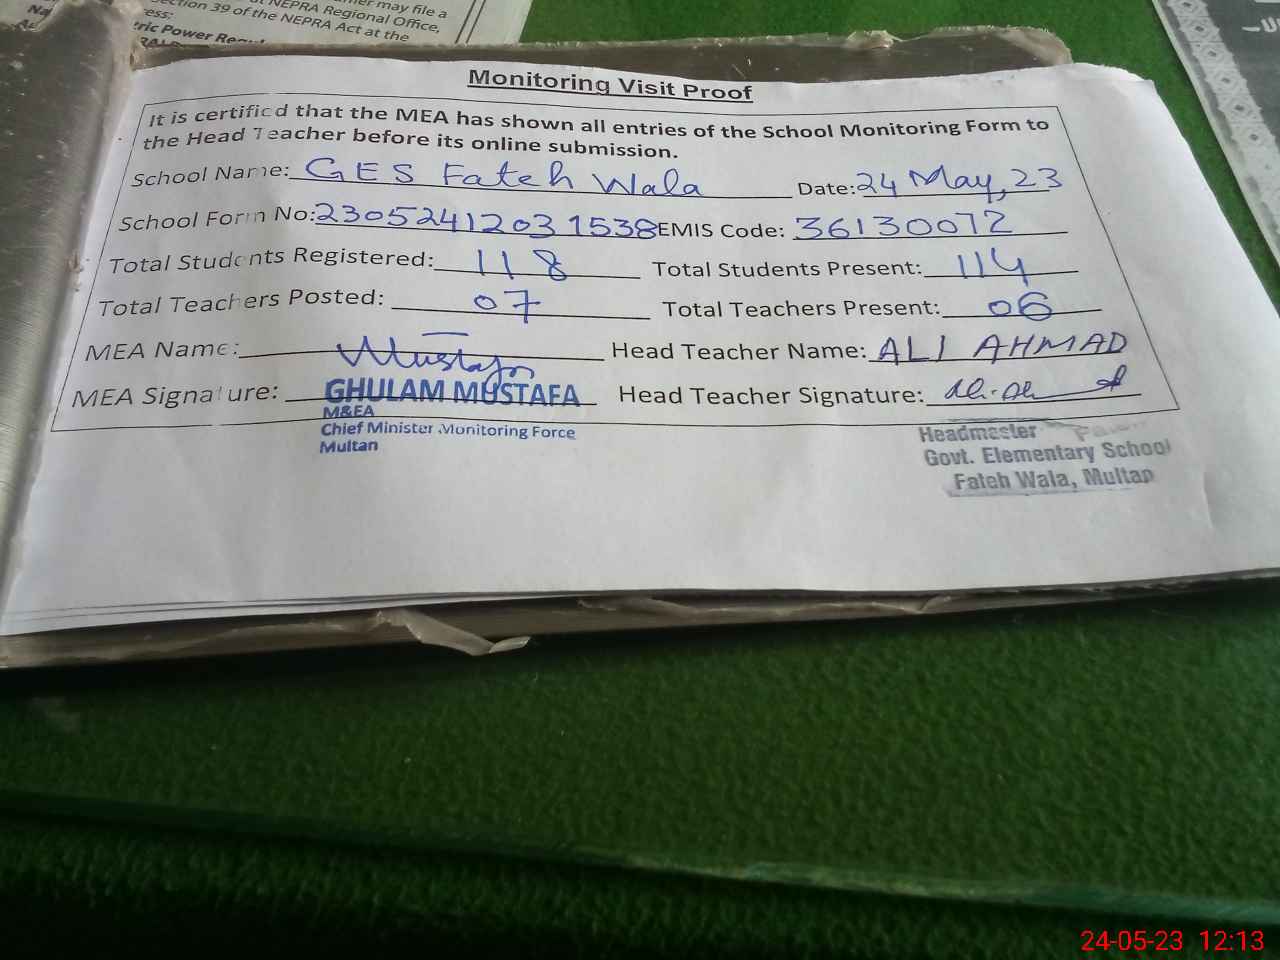 mer may file a
NEPRA Regional Office,
ection 39 of the NEPRA Act at the
ess:
tric Power
Monitoring Visit Proof
It is certified that the MEA has shown all entries of the School Monitoring Form to
the Head Teacher before its online submission.
School Name: GES Fateh Wala Date: 24 May, 23
School Form No: 23052412031538 EMIS Code: 36130072
Total Students Registered: 118 Total Students Present: 114
Total Teachers Posted: 07 Total Teachers Present: 06
MEA Name: Mustafa Head Teacher Name: ALI AHMAD
MEA Signature: Head Teacher Signature:
GHULAM MUSTAFA
M&EA
Chief Minister Monitoring Force
Multan
Headmaster
Govt. Elementary School
Fateh Wala, Multan
24-05-23 12:13